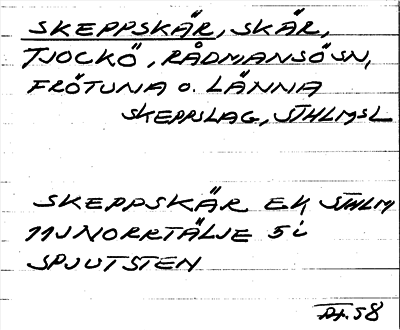 SKEPPSKÄR, SKÄR,
TJOCKÖ, RÅDMANSÖSN,
FRÖTUNA O. LÄNNA
SKEPPSLAG, STHLMSL
SKEPPSKÄR EK STHLM
11J NORRTÄLJE 5i
SPJUTSTEN
58